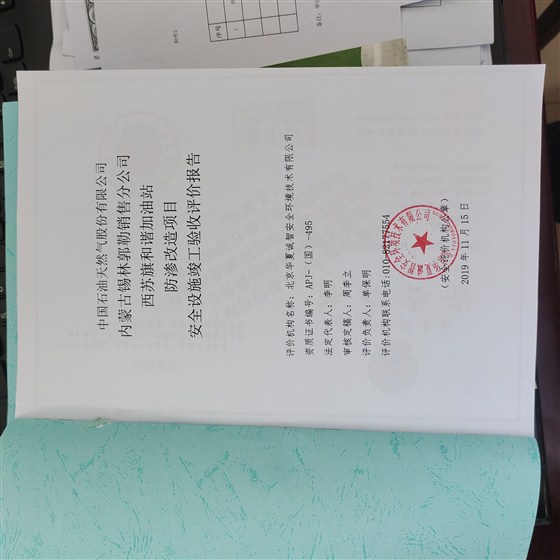 中国石油天然气股份有限公司
内蒙古锡林郭勒销售分公司
西苏旗和谐加油站
防渗改造项目
安全设施竣工验收评价报告
评价机构名称：北京华夏诚智安全环境技术有限公司
资质证书编号：APJ-（国）-495
法定代表人：李明
审核定稿人：周李立
评价负责人：单保明
评价机构联系电话：010-82477554
（安全评价机构公章）
2019年11月15日